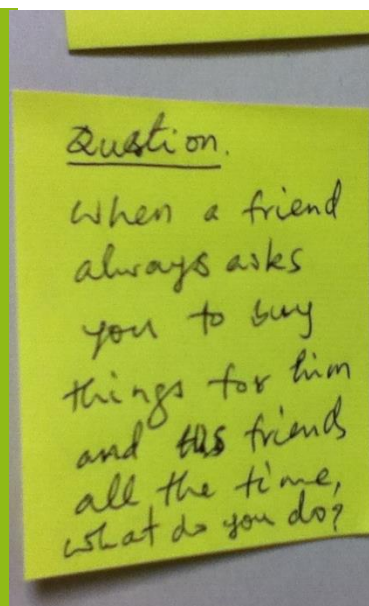 Question.
when a friend
always asks
you to buy
things for him
and his friends
all the time,
what do you do?